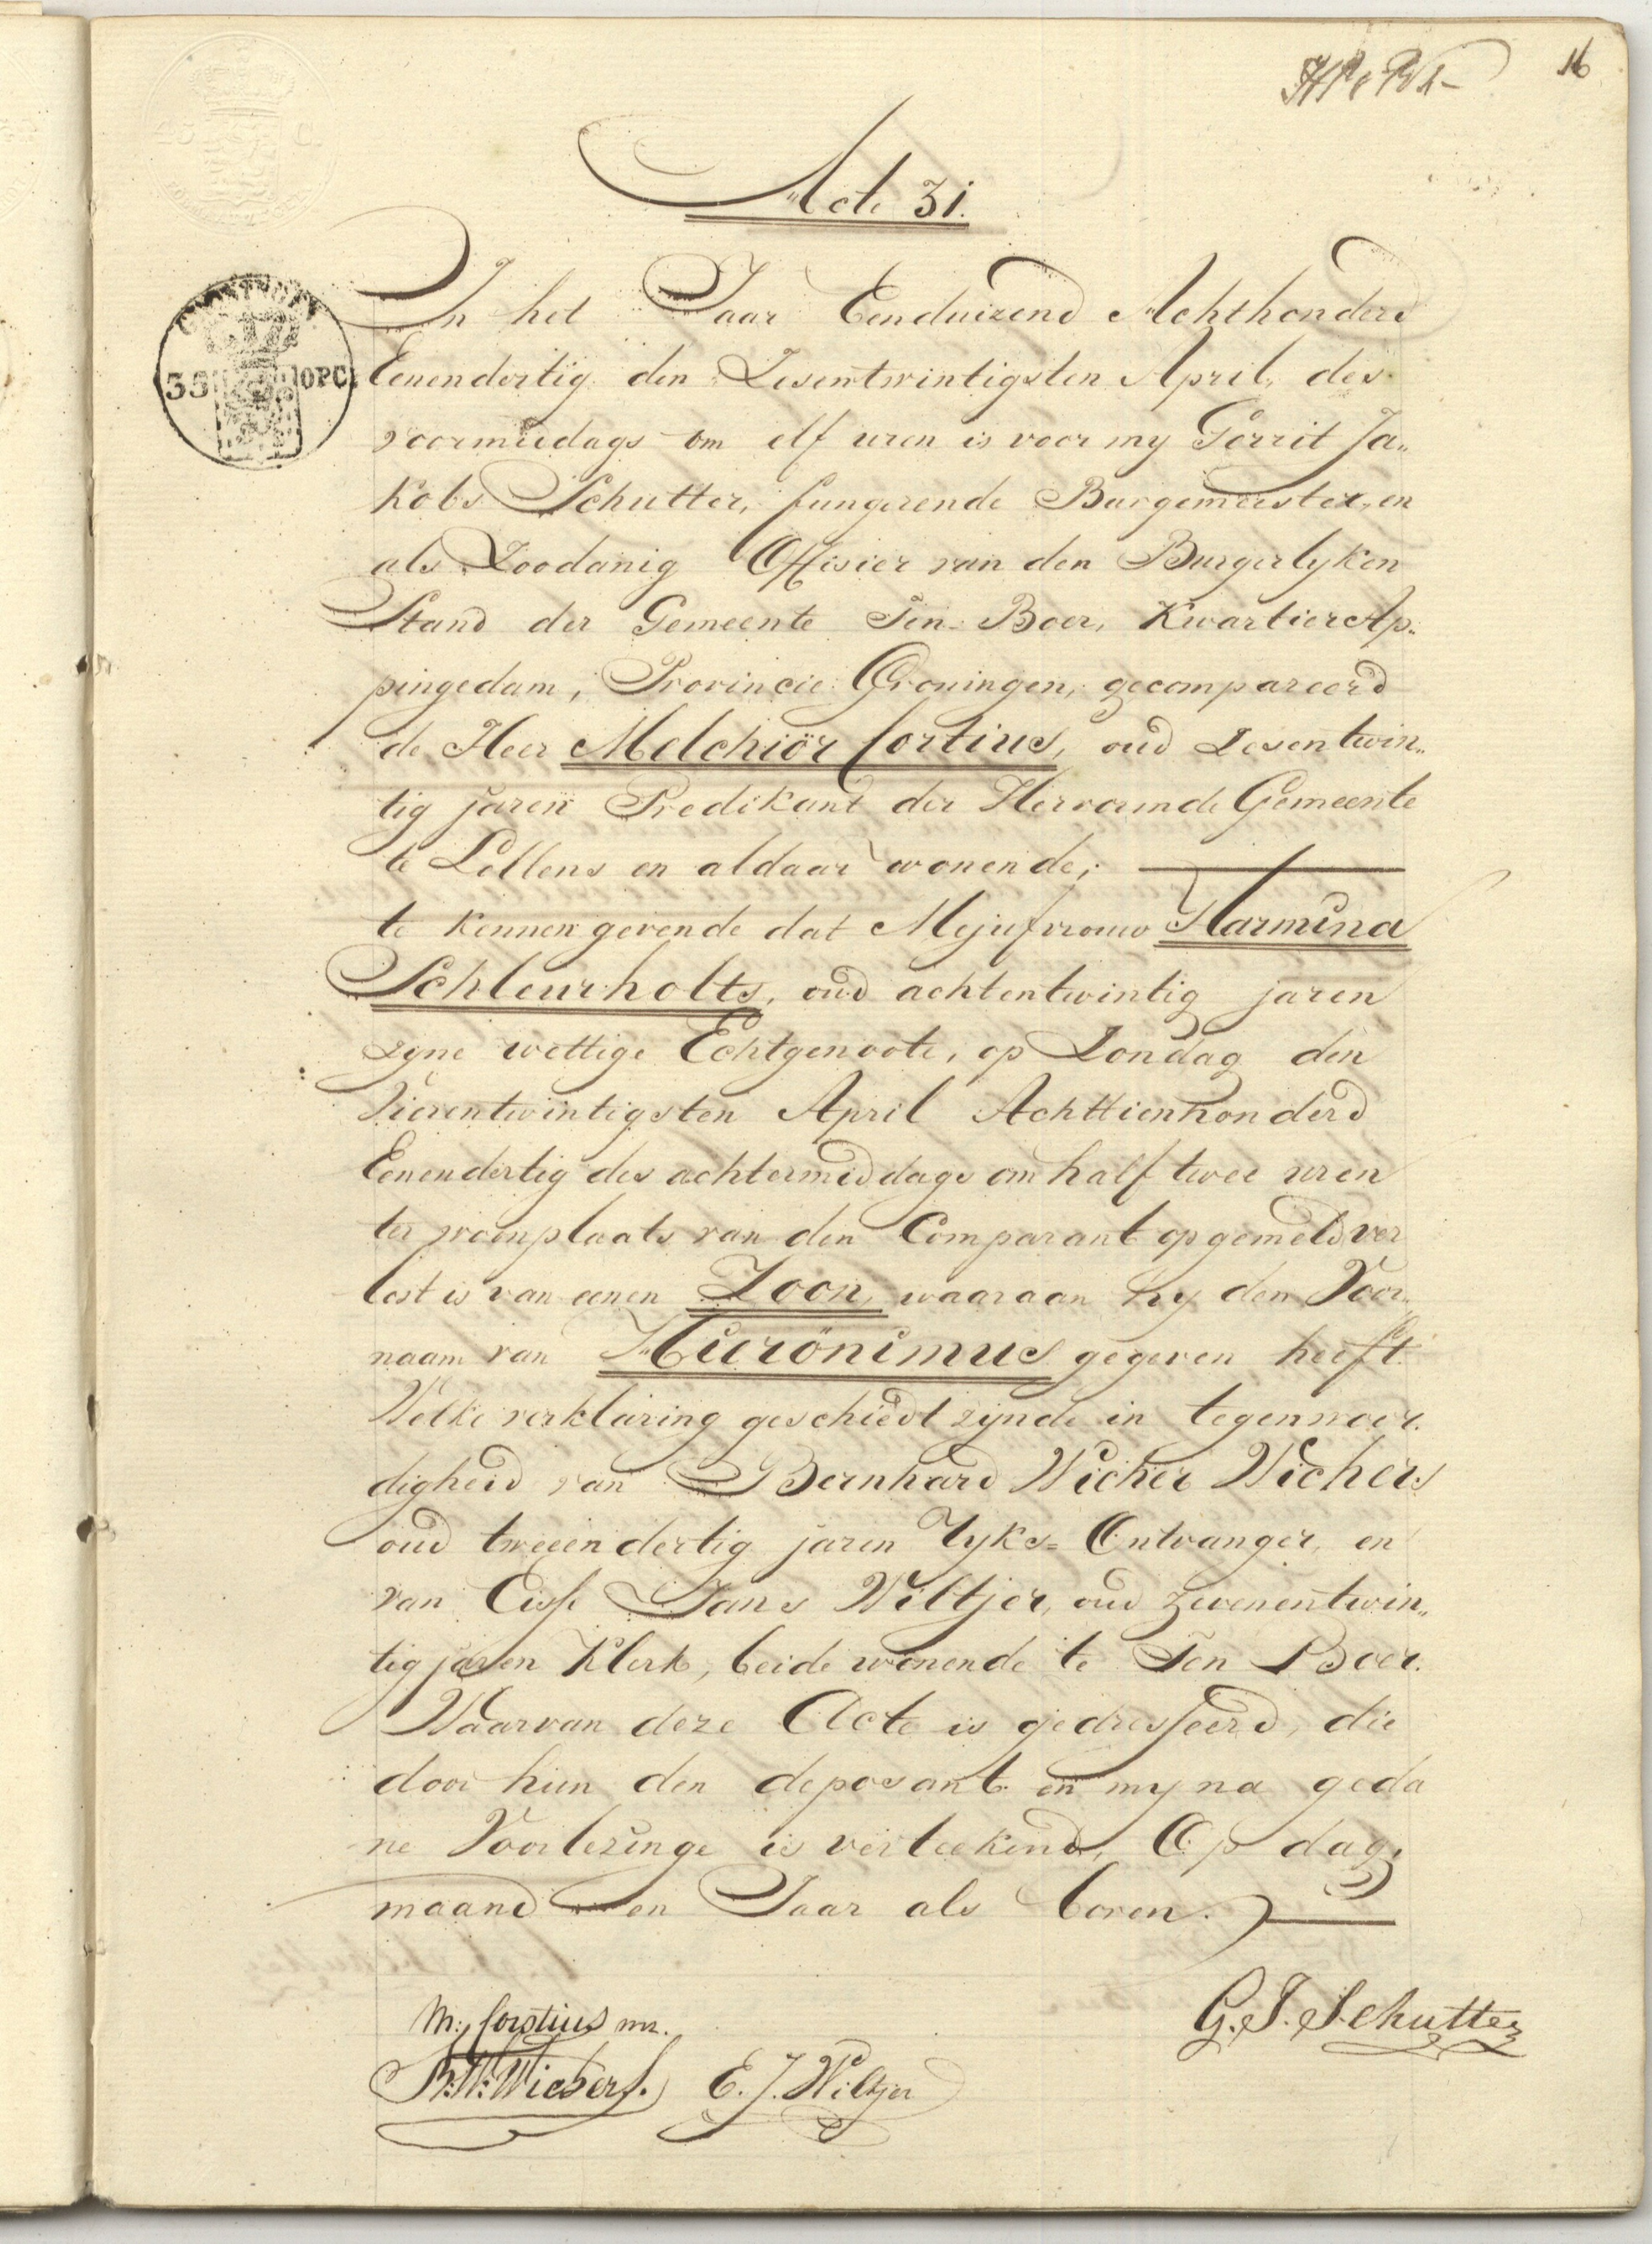 16
Acte 31.
In het Jaar Eenduizend Achthonderd
35 OPC. Eenendertig den Zesentwintigsten April, des
voormiddags om elf uren is voor my Gerrit Ja„
kobs Schutter, fungerende Burgemeester, en
als Zoodanig Offisier van den Burgerlyken
Stand der Gemeente Ten Boer, Kwartier Ap„
pingedam, Provincie Groningen, gecompareerd
de Heer Melchiör Corstius, oud Zesentwin„
tig jaren Predikant der Hervormde Gemeente
te Lellens en aldaar wonende;
te kennen gevende dat Mejufvrouw Harmina
Schleurholts, oud achtentwintig jaren
zyne wettige Echtgenoote, op Zondag den
Vierentwintigsten April Achttienhonderd
Eenendertig des achtermiddags om half twee uren
ter woonplaats van den Comparant opgemeld ver
lost is van eenen Zoon, waaraan hy den Voor„
naam van Hierönimus gegeven heeft.
Welke verklaring geschiedt zijnde in tegenwoor„
digheid van Bernhard Wicher Wichers
oud tweeendertig jaren Ryks= Ontvanger, en
van Eisse Jans Wiltjer, oud zevenentwin„
tig jaren Klerk, beide wonende te Ten Boer.
Waarvan deze Acte is gedresseerd, die
door hun den deposant en my na geda
ne Voorlezinge is verteekend, Op dag,
maand en Jaar als boven.
M: Corstius G. J. Schutter
B: W: Wichers. E. J. Wiltjer